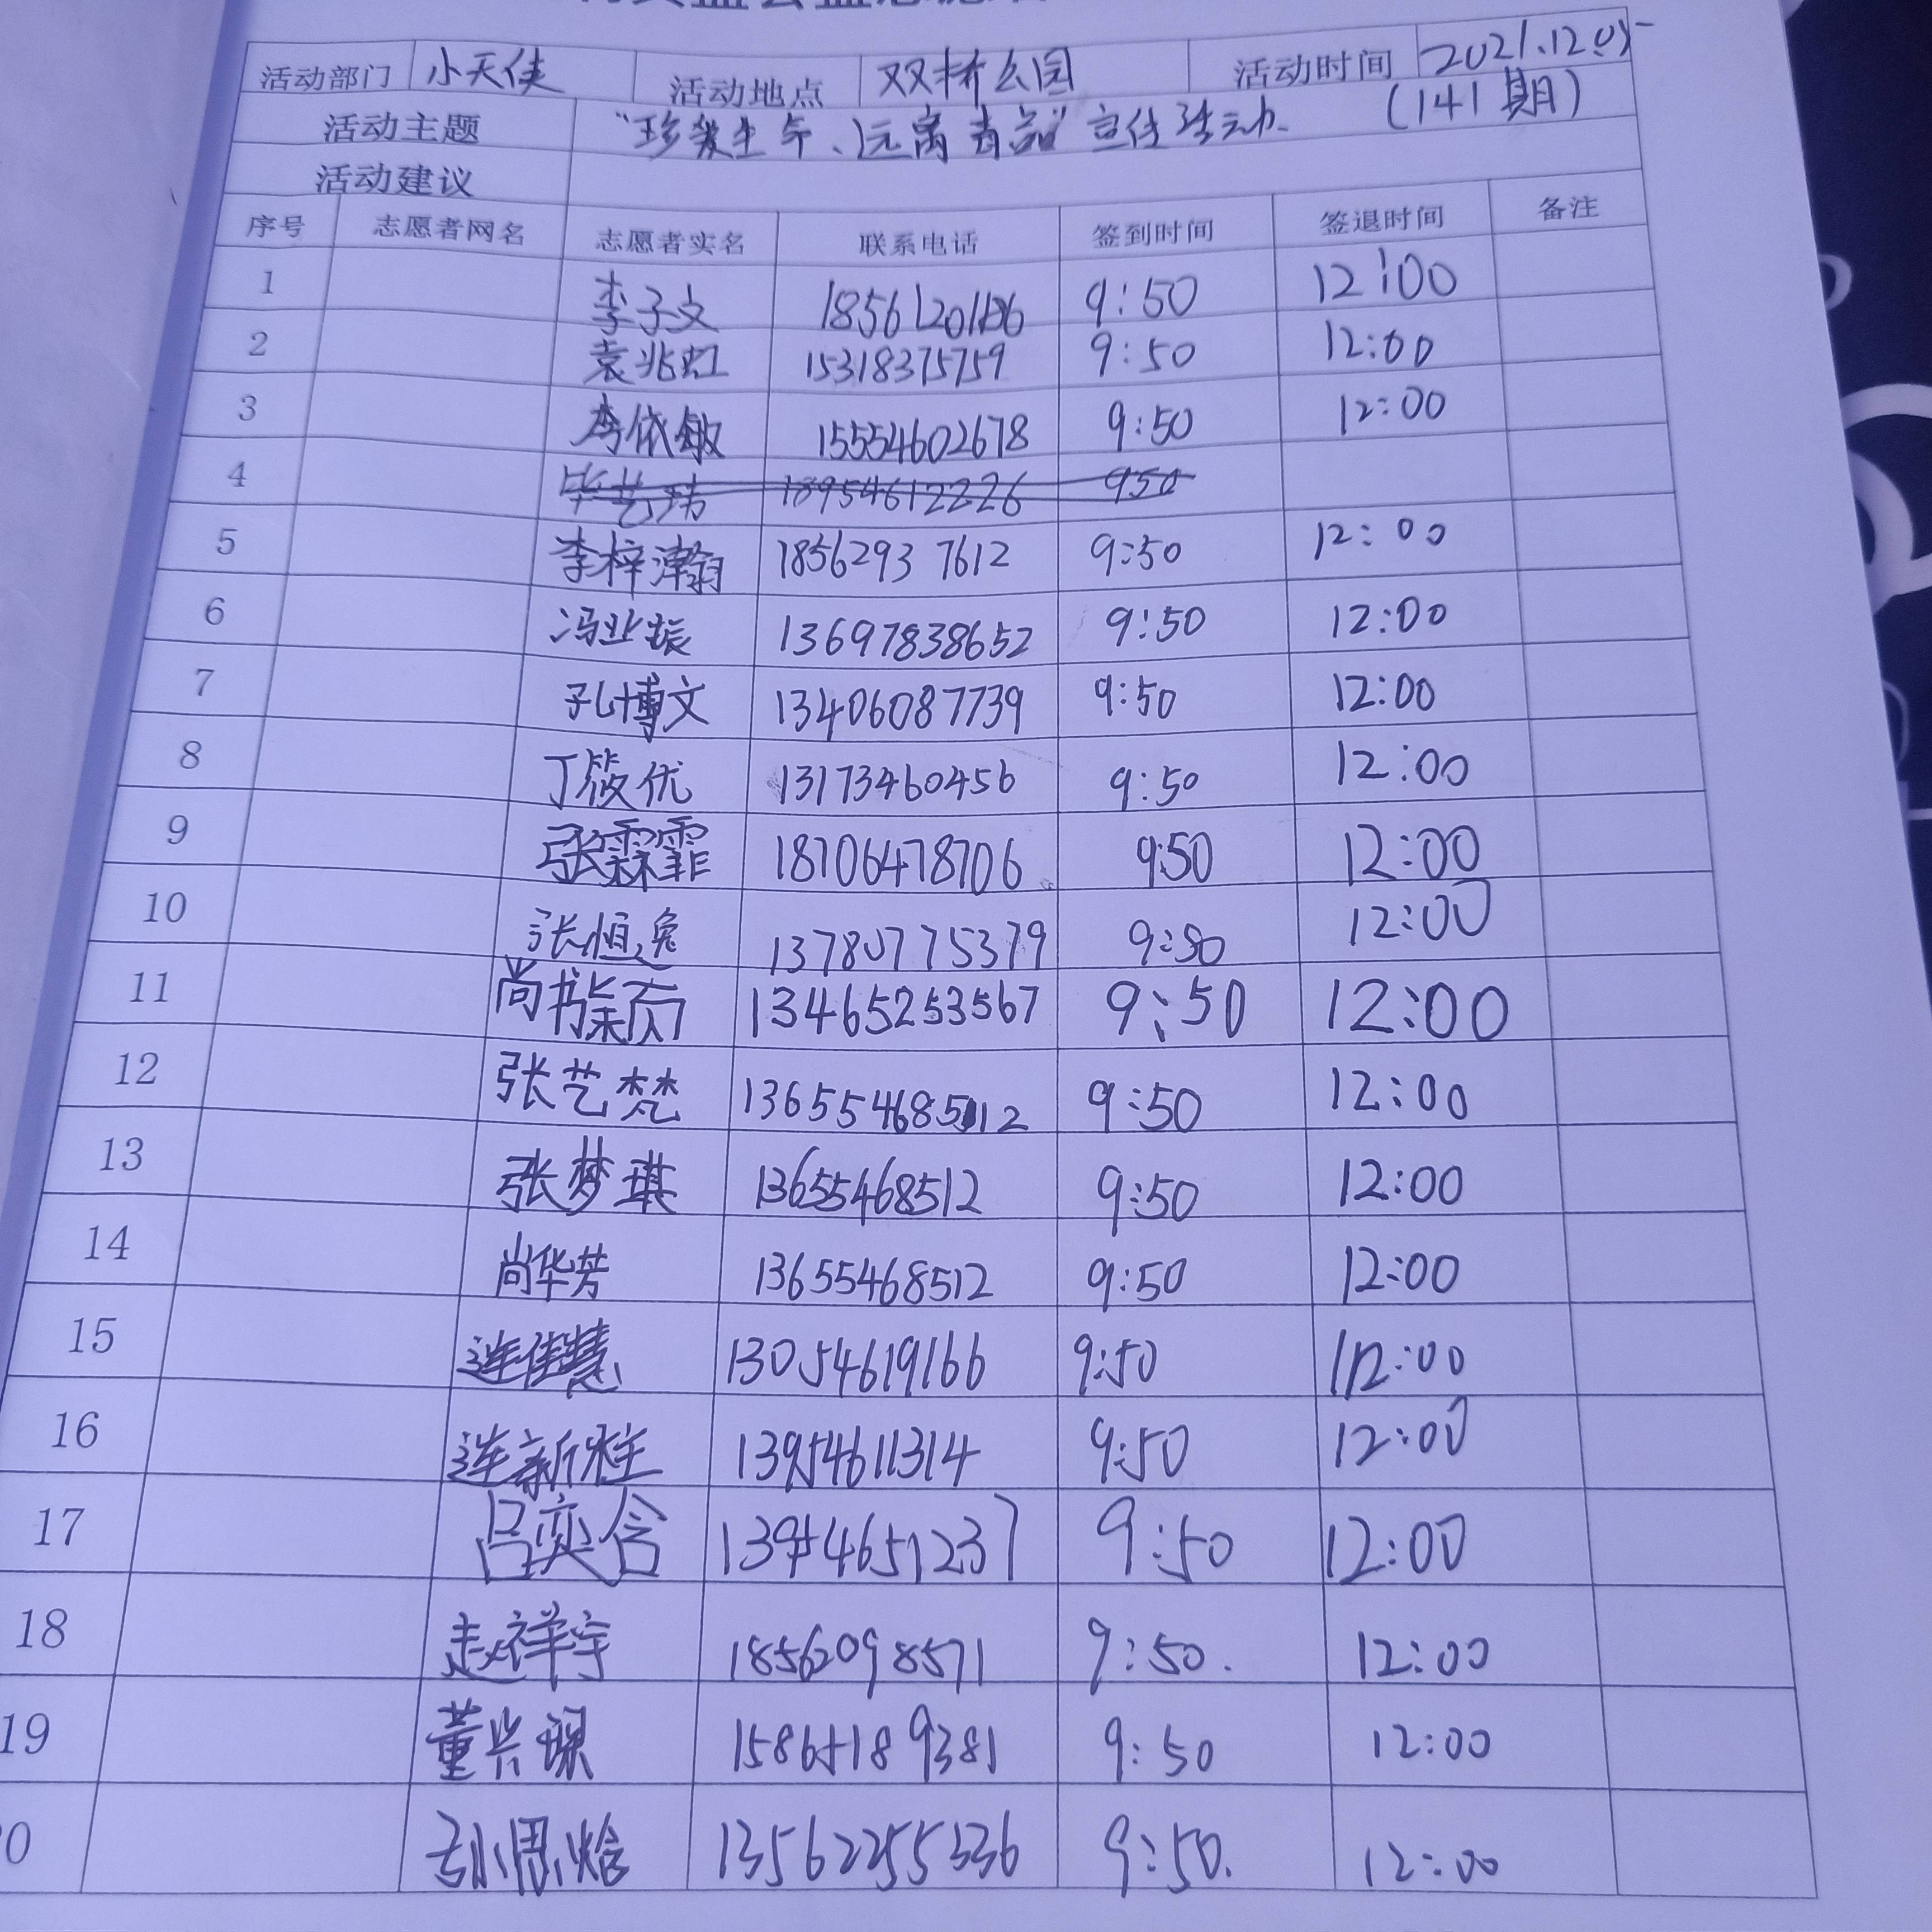 活动部门 小天使 活动地点 双桥公园 活动时间 2021.12.05
活动主题 “珍爱生命、远离毒品”宣传活动. (141期)
活动建议
序号 志愿者网名 志愿者实名 联系电话 签到时间 签退时间 备注
1 李子文 9:50 12:00
2 袁兆虹 15318375759 9:50 12:00
3 李依敏 15554602678 9:50 12:00
4 18954612226 950
5 李梓瀚 18562937612 9:50 12:00
6 冯业振 13697838652 9:50 12:00
7 孔博文 13406087739 9:50 12:00
8 丁筱优 13173460456 9:50 12:00
9 张霖霏 18706478706 9:50 12:00
10 张恒逸 13780775379 9:50 12:00
11 尚书颖 13465253567 9:50 12:00
12 张艺梵 9:50 12:00
13 张梦琪 13655468512 9:50 12:00
14 尚华芳 13655468512 9:50 12:00
15 连佳慧 13054619166 9:50 12:00
16 连新 13954611314 9:50 12:00
17 吕奕含 13954651237 9:50 12:00
18 赵祥宇 18562098571 9:50. 12:00
19 董兴琛 15865189381 9:50 12:00
0 孙思焓 13562255336 9:50. 12:00